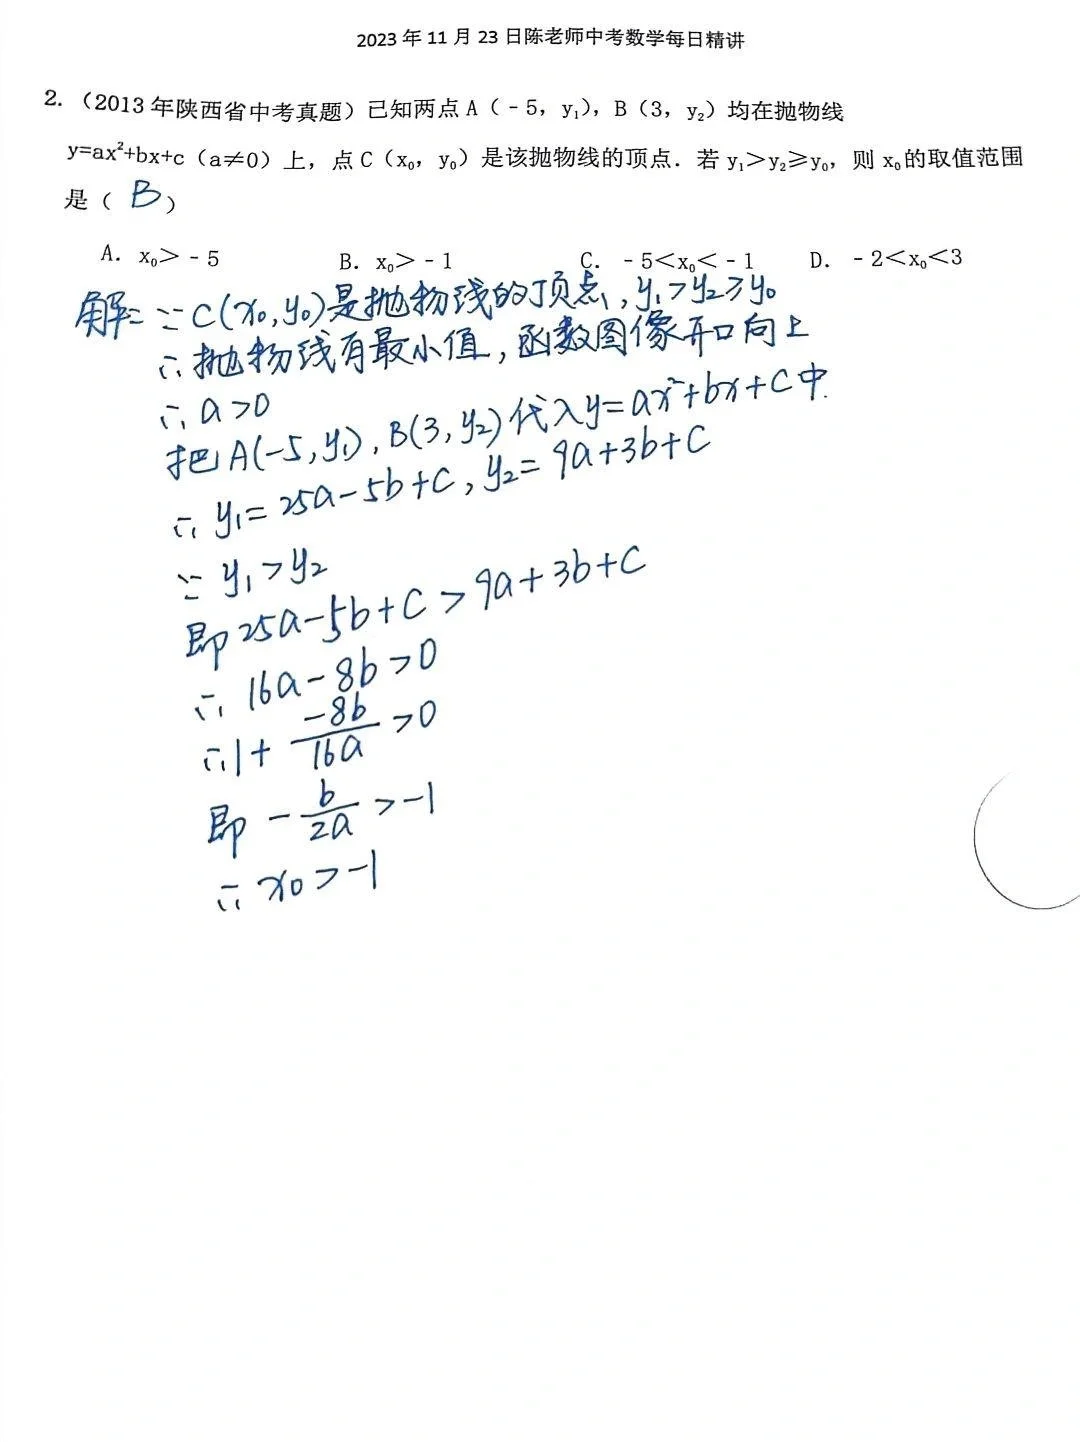 2023 年 11 月 23 日陈老师中考数学每日精讲
2. （2013 年陕西省中考真题）已知两点 A（﹣5，y₁），B（3，y₂）均在抛物线
y=ax²+bx+c（a≠0）上，点 C（x₀，y₀）是该抛物线的顶点．若 y₁＞y₂≥y₀，则 x₀的取值范围
是（ B ）
A. x₀＞﹣5 B. x₀＞﹣1 C. ﹣5＜x₀＜﹣1 D. ﹣2＜x₀＜3
解：∵C(x₀,y₀)是抛物线的顶点,y₁>y₂≥y₀
∴抛物线有最小值,函数图像开口向上
∴a>0
把A(-5,y₁),B(3,y₂)代入y=ax²+bx+c中.
∴y₁=25a-5b+c,y₂=9a+3b+c
∵y₁>y₂
即25a-5b+c>9a+3b+c
∴16a-8b>0
∴1+\frac{-8b}{16a}>0
即-\frac{b}{2a}>-1
∴x₀>-1